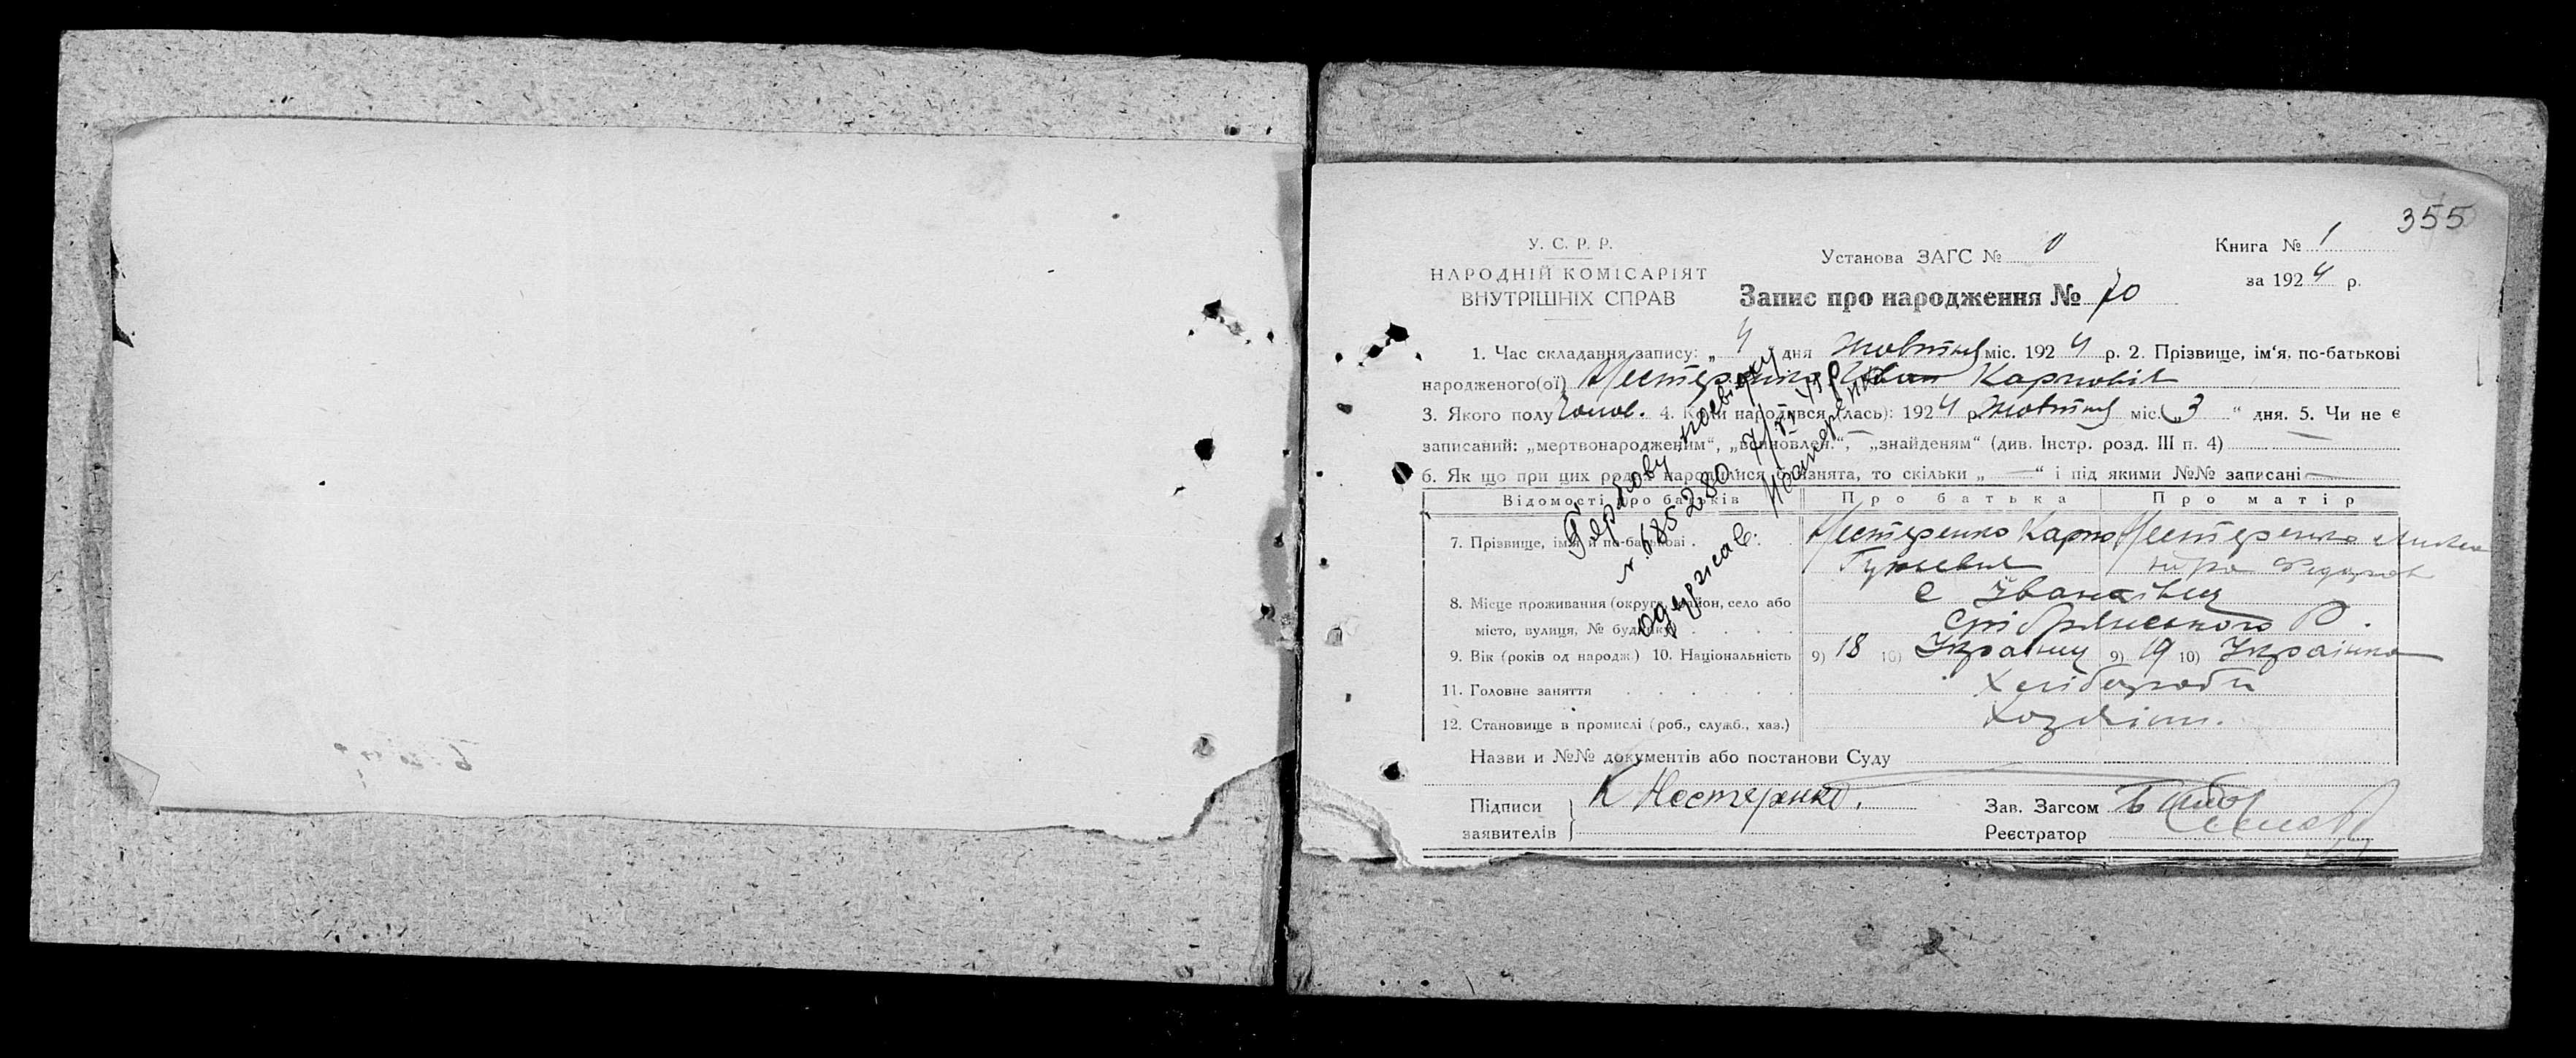 355
У. С. Р. Р.
НАРОДНІЙ КОМІСАРІЯТ
ВНУТРІШНІХ СПРАВ
Установа ЗАГС № 0
Запис про народження № 70
Книга № 1
за 1924 р.
1. Час складання запису: „ 4 " дня Жовтня міс. 1924 р. 2. Прізвище, ім'я, по-батькові
народженого(ої) Нестеренко Іван Карпович
3. Якого полу Чолов. 4. Коли народився (лась): 1924 р. Жовтня міс. „ 3 " дня. 5. Чи не є
записаний: „мертвонародженим", „всиновлен.", „знайденям" (див. Інстр. розд. III п. 4)
6. Як що при цих родах народилися близнята, то скільки „ — " і під якими №№ записані —
Відомості про батьків Про батька Про матір
7. Прізвище, ім'я й по-батькові . Нестеренко Карпо Нестеренко
8. Місце проживання (округа, район, село або с Іванківці
місто, вулиця, № будинку) Срібрянського Р.
9. Вік (років од народж.) 10. Національність 9) 18 10) Українец 9) 19 10) Українка
11. Головне заняття Хліборобы
12. Становище в промислі (роб., служб., хаз.) Хозяіни.
Назви и №№ документів або постанови Суду
Підписи заявителів К Нестеренко.
Зав. Загсом
Реєстратор
Гербову
№ 685280
одержав. Нестеренко